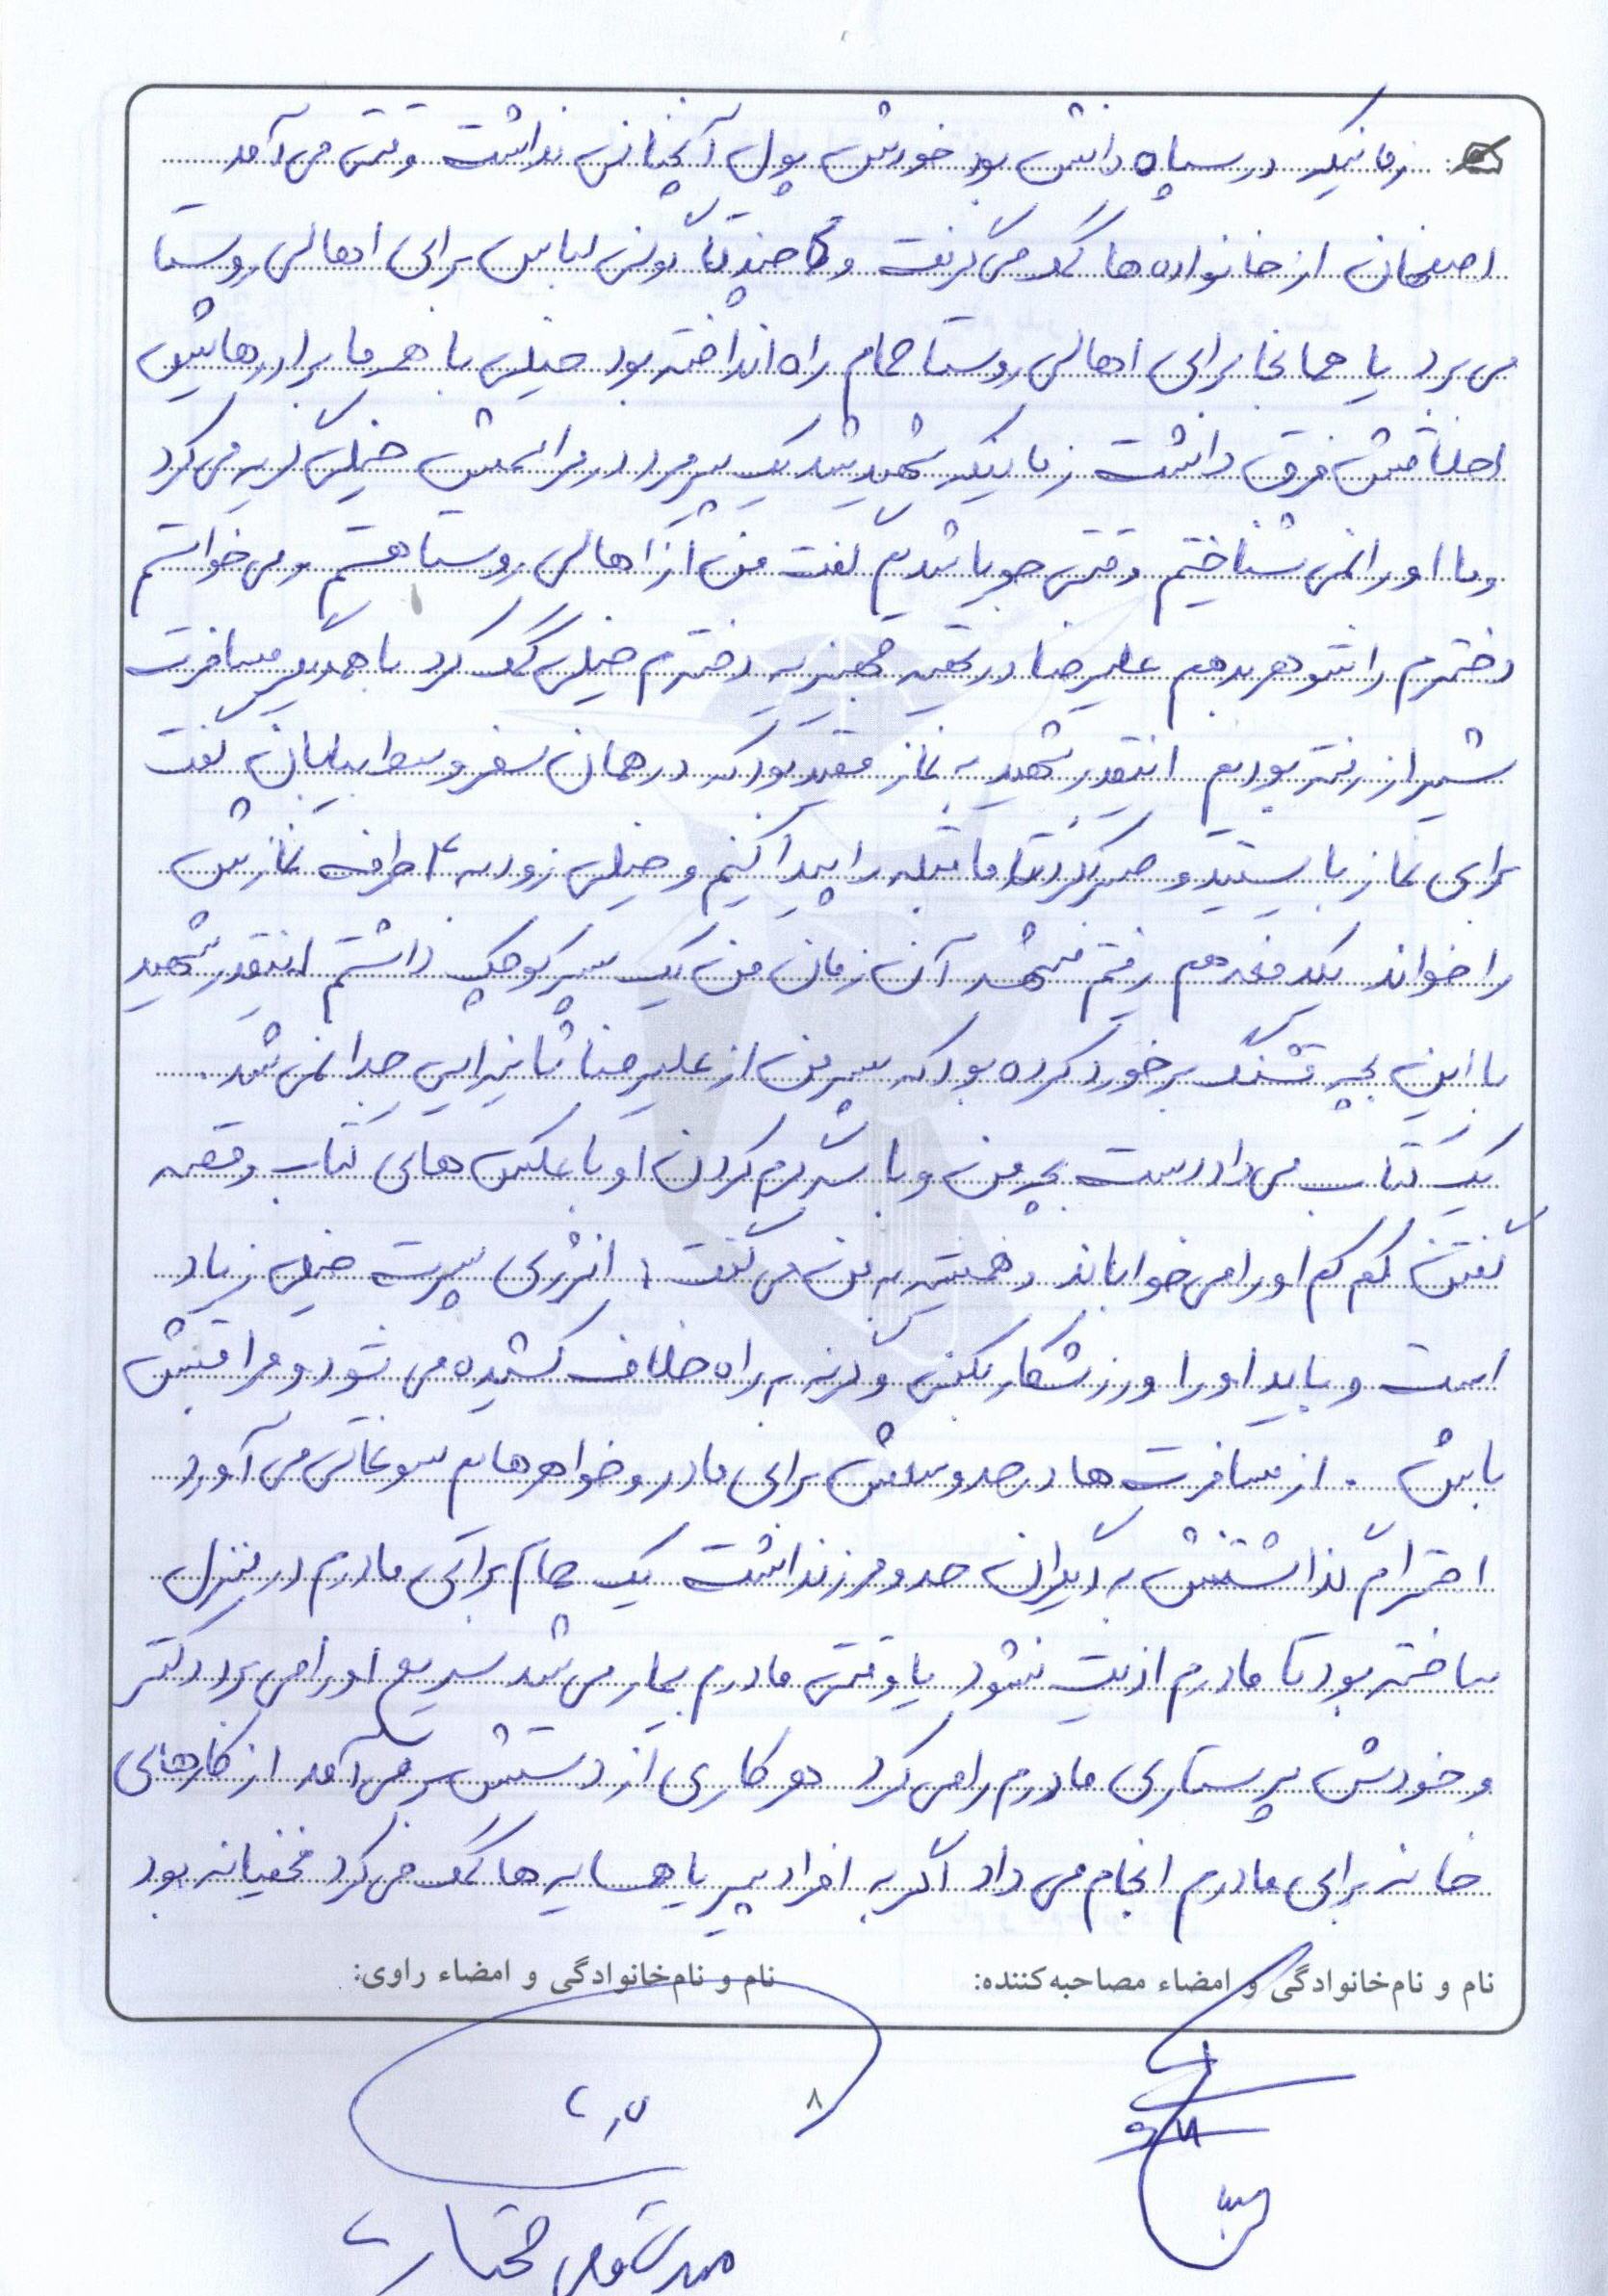 زمانیکه در سپاه دانش بود خودش پول آنچنانی نداشت وقتی می‌آمد
اصفهان از خانواده‌ها کمک می‌گرفت و چند تا گونی لباس برای اهالی روستا
می‌برد یا همانجا برای اهالی روستا حمام راه انداخته بود خیلی با همه ما برادرهایش
اخلاقش فرق داشت زمانیکه شهید شد یک پیرمرد در مراسمش خیلی گریه می‌کرد
و ما او را نمی‌شناختیم وقتی جویا شدیم گفت من از اهالی روستا هستم و می‌خواستم
دخترم را شوهر بدهم علیرضا در تهیه جهیزیه دخترم خیلی کمک کرد با هم یک مسافرت
شیراز رفته بودیم اینقدر شهید به نماز مقید بود که در همان سفر وسط بیابان گفت
برای نماز بایستید و صبر نکرد تا ما قبله را پیدا کنیم و خیلی زود به ۴ طرف نمازش
را خواند یکدفعه هم رفتم مشهد آن زمان من یک پسر کوچک داشتم اینقدر شهید
با این بچه قشنگ برخورد کرده بود که پسر من از علیرضا ثانیه‌ایی جدا نمی‌شد.
یک کتاب می‌داد دست بچه من و با سرگرم کردن او با عکس‌های کتاب و قصه
گفتن کم کم او را می‌خواباند و همیشه به من می‌گفت: انرژی پسرت خیلی زیاد
است و باید او را ورزشکار بکنی وگرنه به راه خلاف کشیده می‌شود و مراقبش
باش. از مسافرت‌ها در حد وسعش برای مادر و خواهرهایم سوغاتی می‌آورد
احترام گذاشتنش به دیگران حد و مرز نداشت یک حمام برای مادرم در منزل
ساخته بود تا مادرم اذیت نشود یا وقتی مادرم بیمار می‌شد سریع او را می‌برد دکتر
و خودش پرستاری مادرم را می‌کرد هر کاری از دستش بر می‌آمد از کارهای
خانه برای مادرم انجام می‌داد اگر به افراد پیر یا همسایه‌ها کمک می‌کرد مخفیانه بود
نام و نام‌خانوادگی و امضاء مصاحبه‌کننده:
نام و نام‌خانوادگی و امضاء راوی:
۸